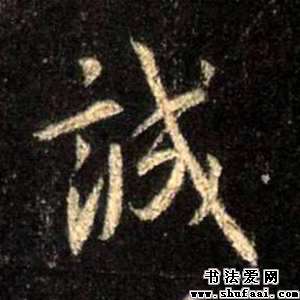 誠
书法爱网
www.shufaai.com